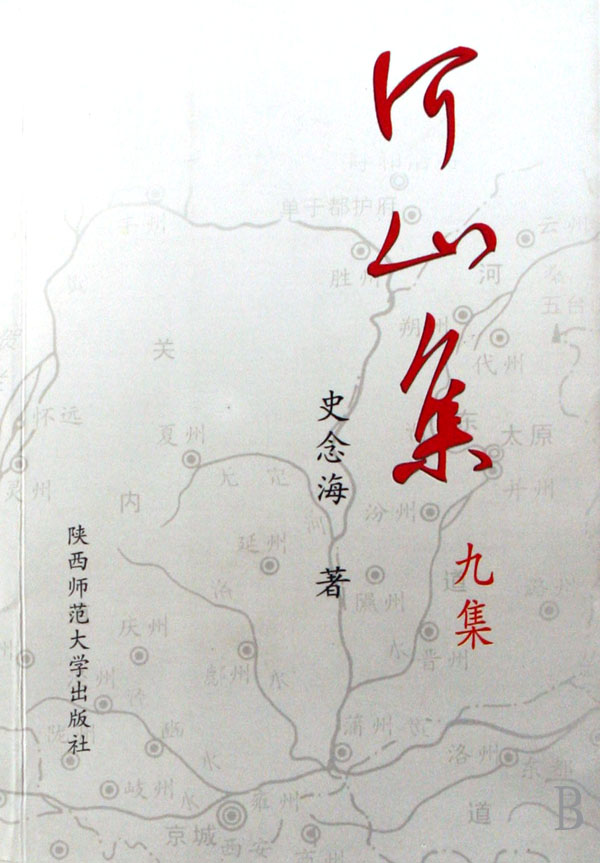 河山集
九集
史念海 著
陕西师范大学出版社
单于都护府
丰州
云州
胜州
河
朔州
五台
关
代州
怀远
夏州
东
太原
灵州
内
汾州
并州
延州
道
隰州
庆州
鄜州
水
晋州
水
蒲州
洛州
东都
水
岐州
水
雍州
道
京城
西安
B